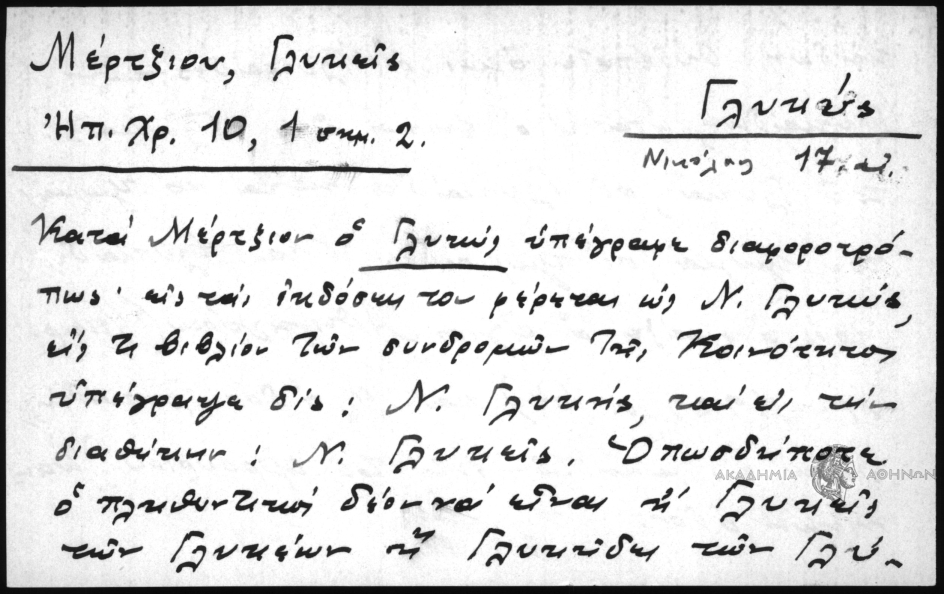 Μέρτζιου, Γλυκεῖς
Ἠπ. Χρ. 10, 1 σημ. 2.
Γλυκύς
Νικόλαος 17. αἰ.
Κατά Μέρτζιον ὁ Γλυκύς ὑπέγραφε διαφοροτρό-
πως· εἰς τάς ἐκδόσεις του φέρεται ὡς Ν. Γλυκύς,
εἰς τι βιβλίον τῶν συνδρομῶν τῆς Κοινότητος
ὑπέγραψε δίς: Ν. Γλυκής, καί εἰς τήν
διαθήκην: Ν. Γλυκεῖς. Ὁπωσδήποτε
ὁ πληθυντικός δέον νά εἶναι ἤ Γλυκεῖς
τῶν Γλυκέων ἤ Γλυκῆδες τῶν Γλυ-
ΑΚΑΔΗΜΙΑ ΑΘΗΝΩΝ